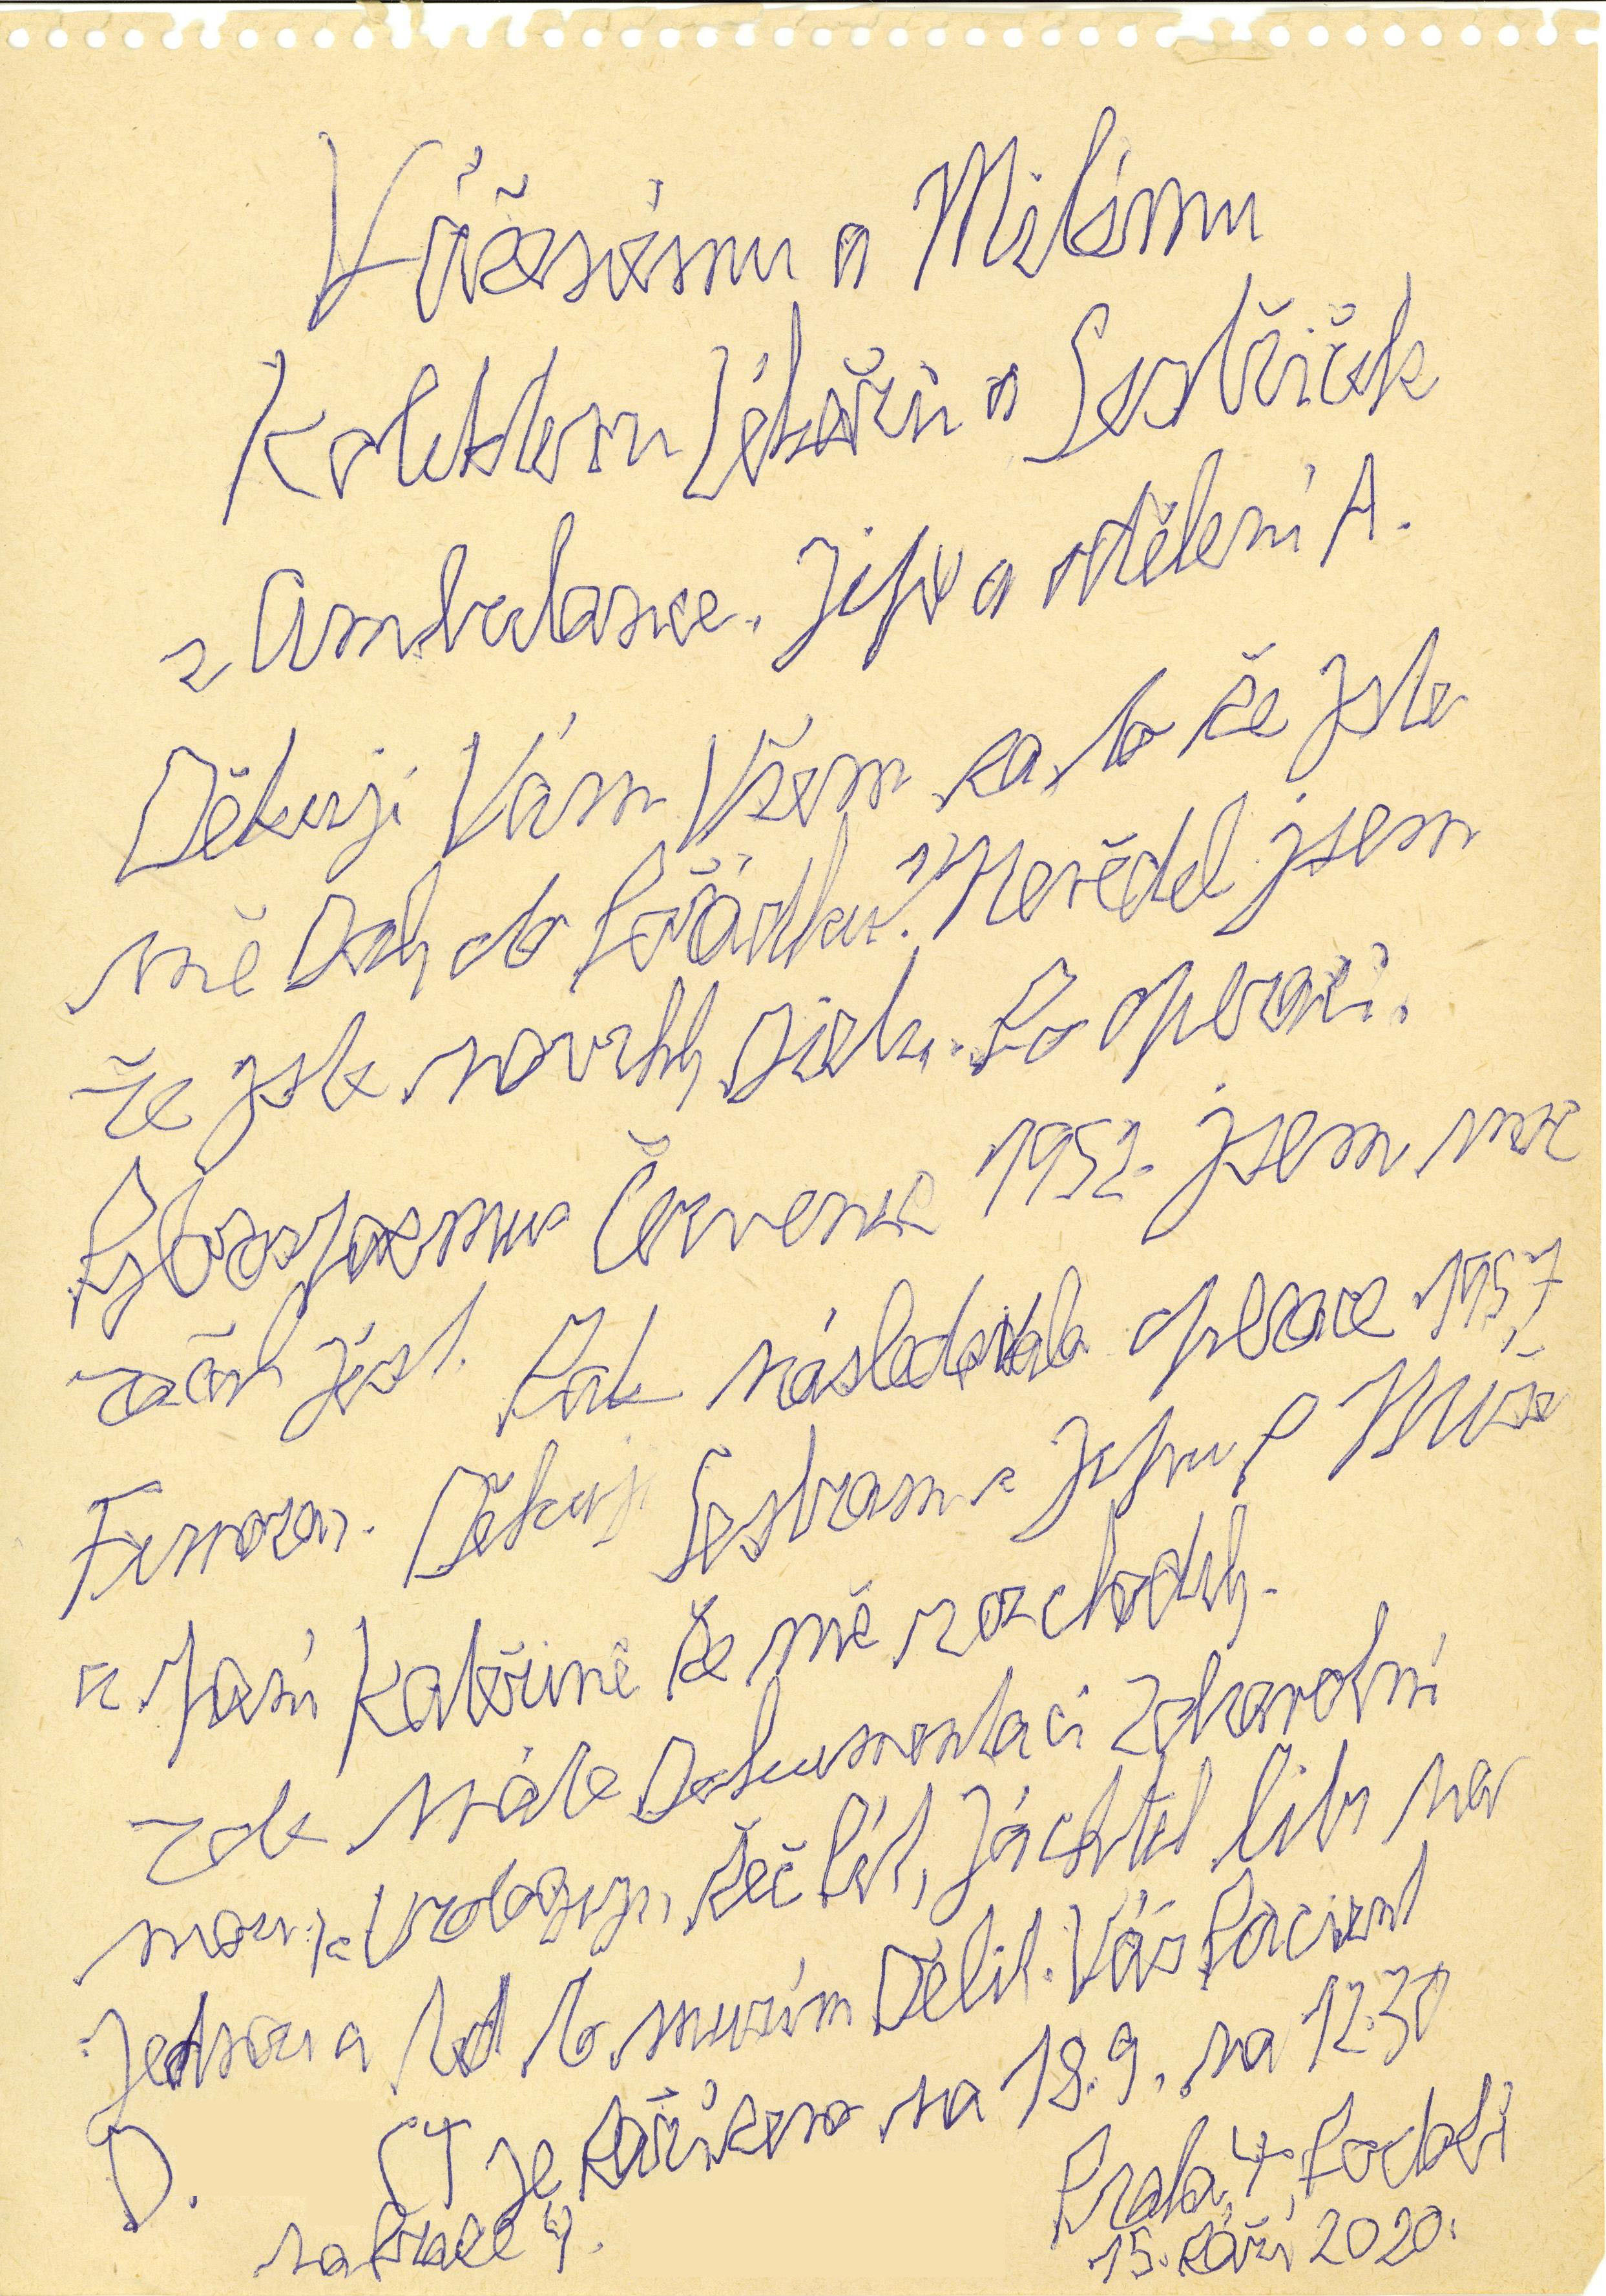 Váženému a Milému
Kolektivu Lékařů a Sestřiček
z Ambulance. Jipu a oddělení A.
Děkuji Vám Všem za to že jste
mě Dali do Pořádku. Nevěděl jsem
že jste navrhli Dietu. Po operaci.
Pylorospasmus Července 1952. jsem moc
začal jíst. Pak následovala operace 1957
Femoran. Děkuji Sestram z Jipu P
a Paní Kateřině že mě rozchodily.
zde máte Dokumentaci zdravotní
mou z Urologie, Řeč Pít, Já chtěl litr na
Jednou a teď to musím Dělit. Váš Pacient
D. CT je zařízeno na 18.9. na 12.30
na Praze 4. Praha 4 Podolí
15. září 2020.